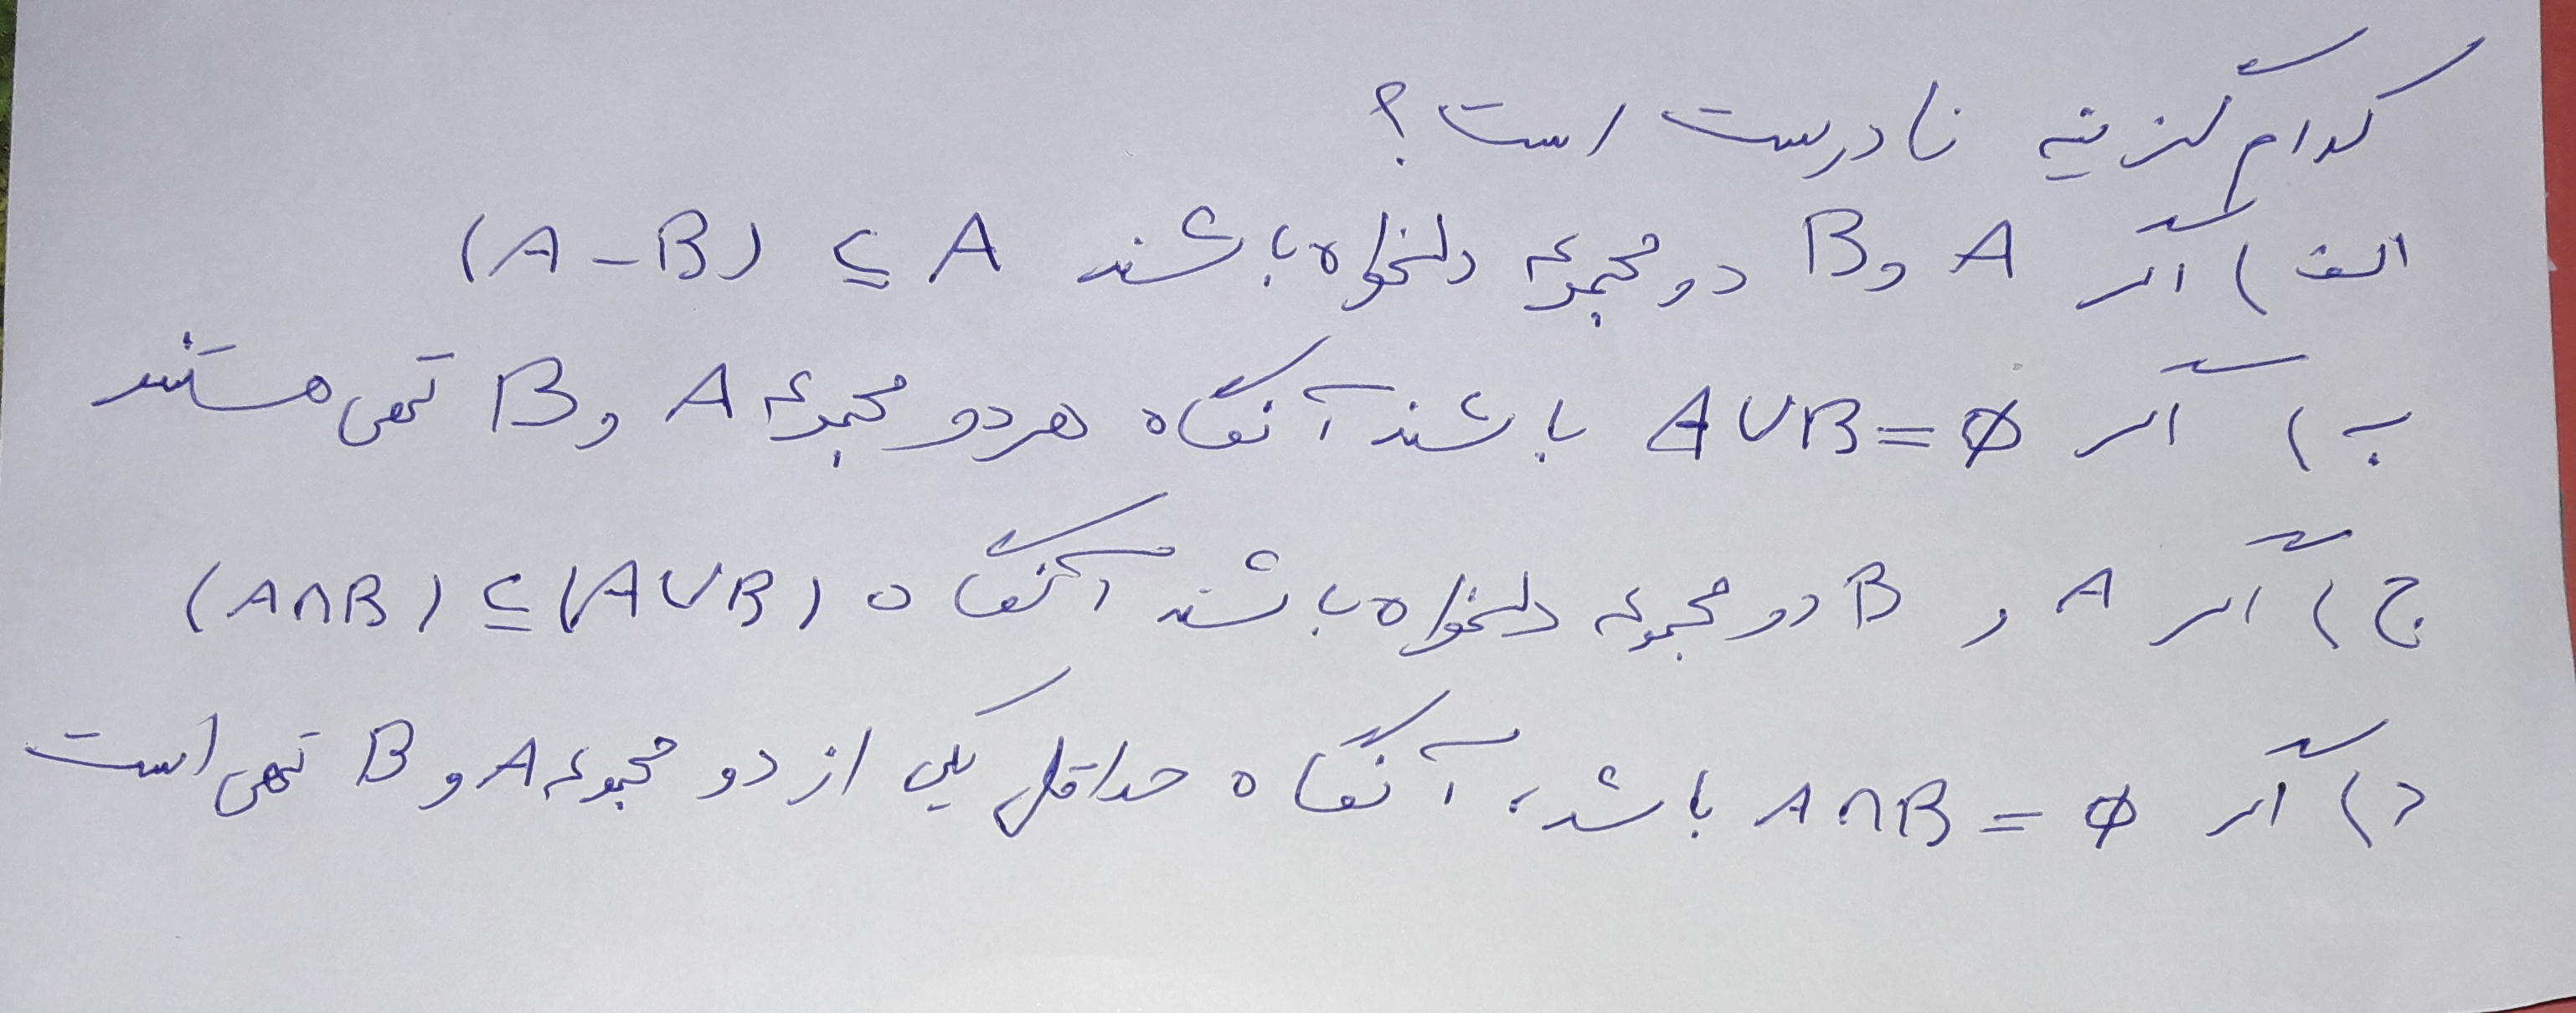 کدام گزینه نادرست است؟
الف) اگر A و B دو مجموعه دلخواه باشند (A-B) ⊆ A
ب) اگر A∪B=∅ باشند آنگاه هر دو مجموعه A و B تهی هستند
ج) اگر A و B دو مجموعه دلخواه باشند آنگاه (A∩B) ⊆ (A∪B)
د) اگر A∩B=∅ باشد، آنگاه حداقل یکی از دو مجموعه A و B تهی است